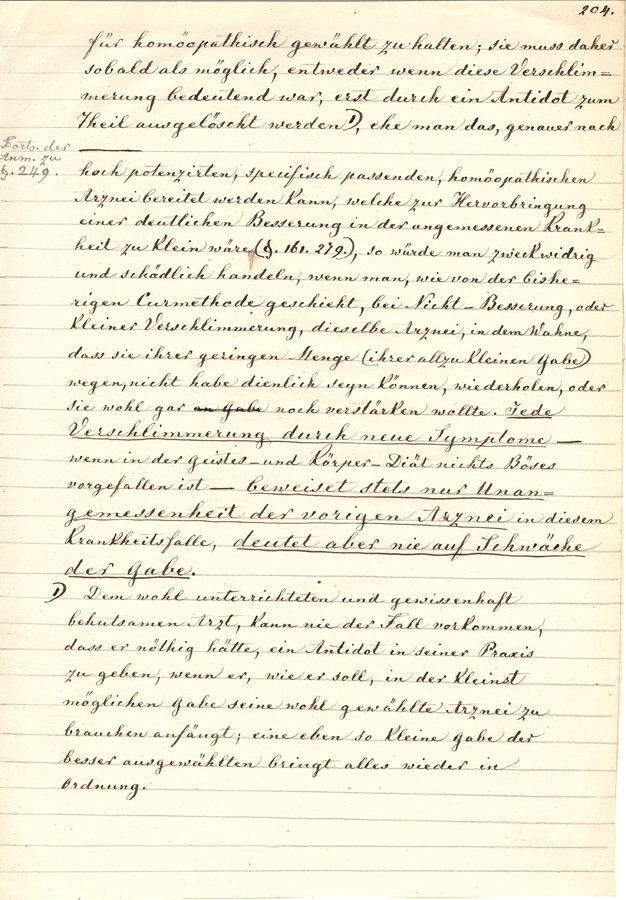 204.
für homöopathisch gewählt zu halten; sie muss daher
sobald als möglich, entweder wenn diese Verschlim=
merung bedeutend war, erst durch ein Antidot zum
Theil ausgelöscht werden 1), ehe man das, genauer nach
Forts. der
Anm. zu
§. 249.
hoch potenzirten, specifisch passenden, homöopathischen
Arznei bereitet werden kann, welche zur Hervorbringung
einer deutlichen Besserung in der angemessenen Krank=
heit zu klein wäre (§. 161. 279.), so würde man zweckwidrig
und schädlich handeln, wenn man, wie von der bishe=
rigen Curmethode geschieht, bei Nicht-Besserung, oder
kleiner Verschlimmerung, dieselbe Arznei, in dem Wahne,
dass sie ihrer geringen Menge (ihrer allzu kleinen Gabe)
wegen, nicht habe dienlich seyn können, wiederholen, oder
sie wohl gar an Gabe noch verstärken wollte. Jede
Verschlimmerung durch neue Symptome —
wenn in der Geistes- und Körper-Diät nichts Böses
vorgefallen ist — beweiset stets nur Unan=
gemessenheit der vorigen Arznei in diesem
Krankheitsfalle, deutet aber nie auf Schwäche
der Gabe.
1) Dem wohl unterrichteten und gewissenhaft
behutsamen Arzt, kann nie der Fall vorkommen,
dass er nöthig hätte, ein Antidot in seiner Praxis
zu geben, wenn er, wie er soll, in der kleinst
möglichen Gabe seine wohl gewählte Arznei zu
brauchen anfängt; eine eben so kleine Gabe der
besser ausgewählten bringt alles wieder in
Ordnung.